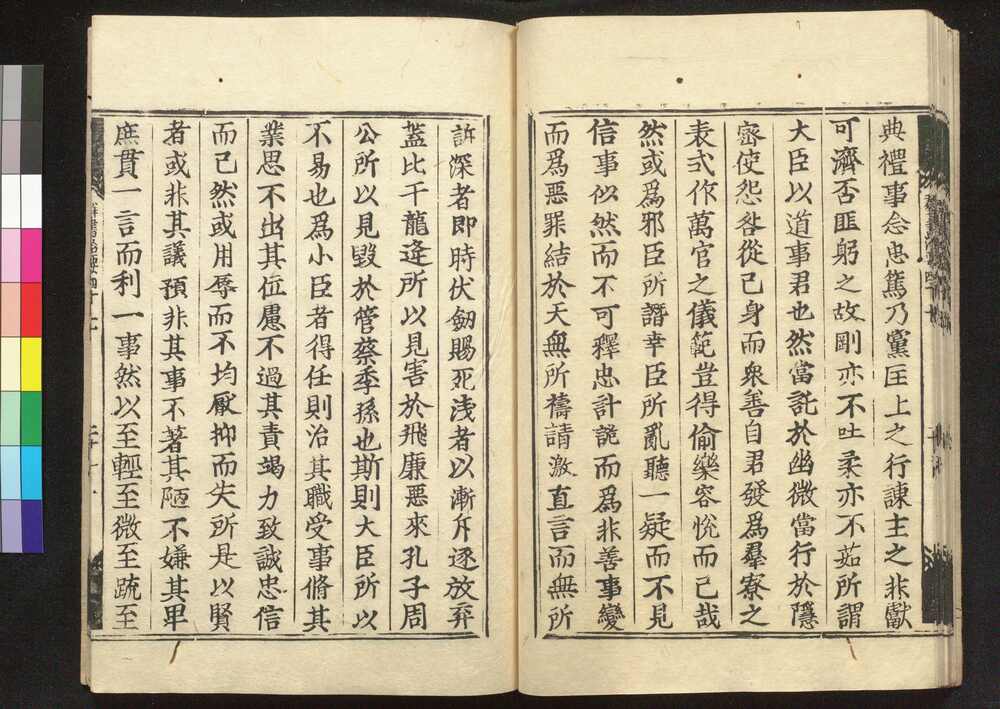 典禮事念忠篤乃黨匡上之行諫主之非獻
可濟否匪躬之故剛亦不吐柔亦不茹所謂
大臣以道事君也然當託於幽微當行於隱
密使怨咎從己身而衆善自君發爲羣寮之
表式作萬官之儀範豈得偷樂容悅而已哉
然或爲邪臣所譖幸臣所亂聽一疑而不見
信事似然而不可釋忠計詭而爲非善事變
而爲惡罪結於天無所禱請激直言而無所
訴深者即時伏劒賜死淺者以漸斥逐放弃
蓋比干龍逄所以見害於飛廉惡來孔子周
公所以見毀於管蔡季孫也斯則大臣所以
不易也爲小臣者得任則治其職受事脩其
業思不出其位慮不過其責竭力致誠忠信
而已然或用辱而不均厭抑而失所是以賢
者或非其議預非其事不著其陋不嫌其卑
庶貫一言而利一事然以至輕至微至疏至
羣書治要四十七